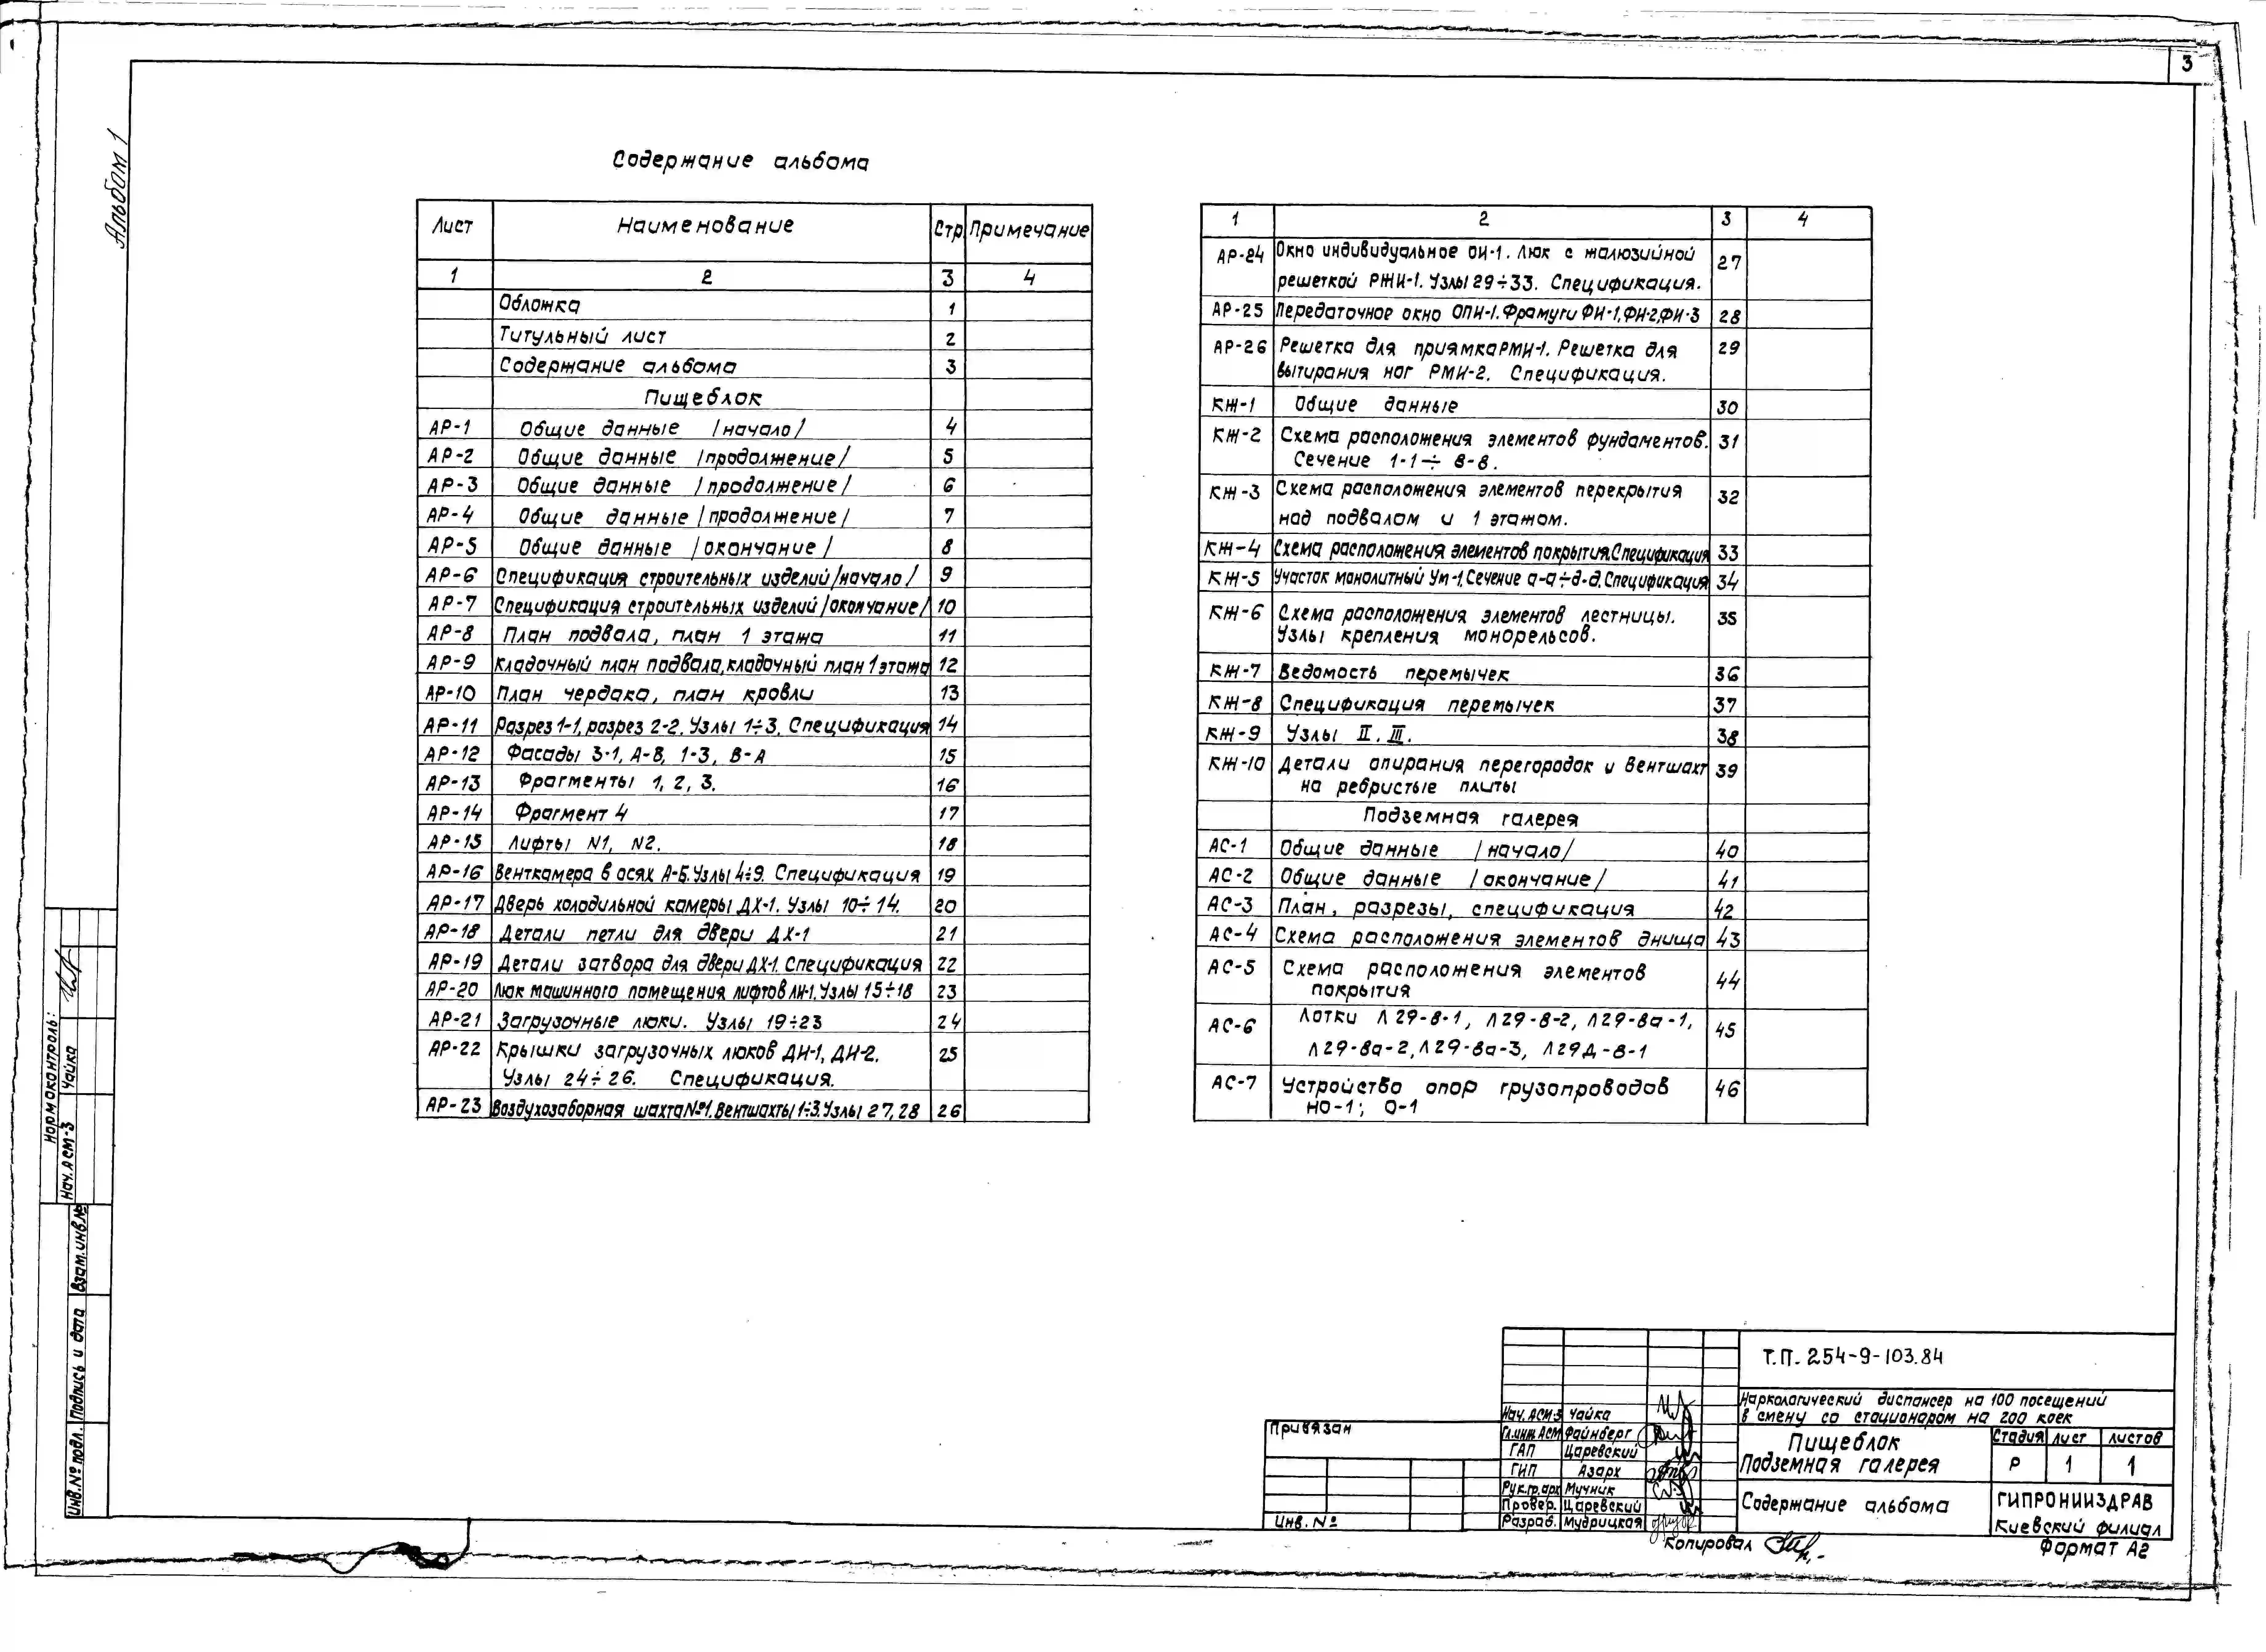 3
Альбом 1
Содержание альбома
Лист Наименование Стр Примечание
1 2 3 4
Обложка 1
Титульный лист 2
Содержание альбома 3
Пищеблок
АР-1 Общие данные /начало/ 4
АР-2 Общие данные /продолжение/ 5
АР-3 Общие данные /продолжение/ 6
АР-4 Общие данные /продолжение/ 7
АР-5 Общие данные /окончание/ 8
АР-6 Спецификация строительных изделий /начало/ 9
АР-7 Спецификация строительных изделий /окончание/ 10
АР-8 План подвала, план 1 этажа 11
АР-9 Кладочный план подвала, кладочный план 1 этажа 12
АР-10 План чердака, план кровли 13
АР-11 Разрез 1-1, разрез 2-2. Узлы 1÷3. Спецификация 14
АР-12 Фасады 3-1, А-В, 1-3, В-А 15
АР-13 Фрагменты 1, 2, 3. 16
АР-14 Фрагмент 4 17
АР-15 Лифты N1, N2. 18
АР-16 Венткамера в осях А-Б. Узлы 4÷9. Спецификация 19
АР-17 Дверь холодильной камеры ДХ-1. Узлы 10÷14. 20
АР-18 Детали петли для двери ДХ-1 21
АР-19 Детали затвора для двери ДХ-1. Спецификация 22
АР-20 Люк машинного помещения лифтов ЛИ-1. Узлы 15÷18 23
АР-21 Загрузочные люки. Узлы 19÷23 24
АР-22 Крышки загрузочных люков ДИ-1, ДИ-2. 25
Узлы 24÷26. Спецификация.
АР-23 Воздухозаборная шахта №1. Вентшахты 1÷3. Узлы 27, 28 26
1 2 3 4
АР-24 Окно индивидуальное ОИ-1. Люк с жалюзийной 27
решеткой РЖИ-1. Узлы 29÷33. Спецификация.
АР-25 Передаточное окно ОПИ-1. Фрамуги ФИ-1, ФИ-2, ФИ-3 28
АР-26 Решетка для приямка РМИ-1. Решетка для 29
вытирания ног РМИ-2. Спецификация.
КЖ-1 Общие данные 30
КЖ-2 Схема расположения элементов фундаментов. 31
Сечение 1-1÷8-8.
КЖ-3 Схема расположения элементов перекрытия 32
над подвалом и 1 этажом.
КЖ-4 Схема расположения элементов покрытия. Спецификация 33
КЖ-5 Участок монолитный Ум-1. Сечение а-а÷д-д. Спецификация 34
КЖ-6 Схема расположения элементов лестницы. 35
Узлы крепления монорельсов.
КЖ-7 Ведомость перемычек 36
КЖ-8 Спецификация перемычек 37
КЖ-9 Узлы II, III. 38
КЖ-10 Детали опирания перегородок и вентшахт 39
на ребристые плиты
Подземная галерея
АС-1 Общие данные /начало/ 40
АС-2 Общие данные /окончание/ 41
АС-3 План, разрезы, спецификация 42
АС-4 Схема расположения элементов днища 43
АС-5 Схема расположения элементов 44
покрытия
АС-6 Лотки Л29-8-1, Л29-8-2, Л29-8а-1, 45
Л29-8а-2, Л29-8а-3, Л29Д-8-1
АС-7 Устройство опор грузопроводов 46
НО-1; О-1
Нормоконтроль:
Нач. АСМ-3 Чайка
Взам. инв. №
Подпись и дата
Инв. № подл.
Привязан
Инв. №
Нач. АСМ-3 Чайка
Гл. инж. АСМ Файнберг
ГАП Царевский
ГИП Азарх
Рук. гр. арх Мучник
Провер. Царевский
Разраб. Мудрицкая
Т.П. 254-9-103.84
Наркологический диспансер на 100 посещений
в смену со стационаром на 200 коек
Пищеблок
Подземная галерея
Стадия лист листов
Р 1 1
Содержание альбома
ГИПРОНИИЗДРАВ
Киевский филиал
Копировал
Формат А2